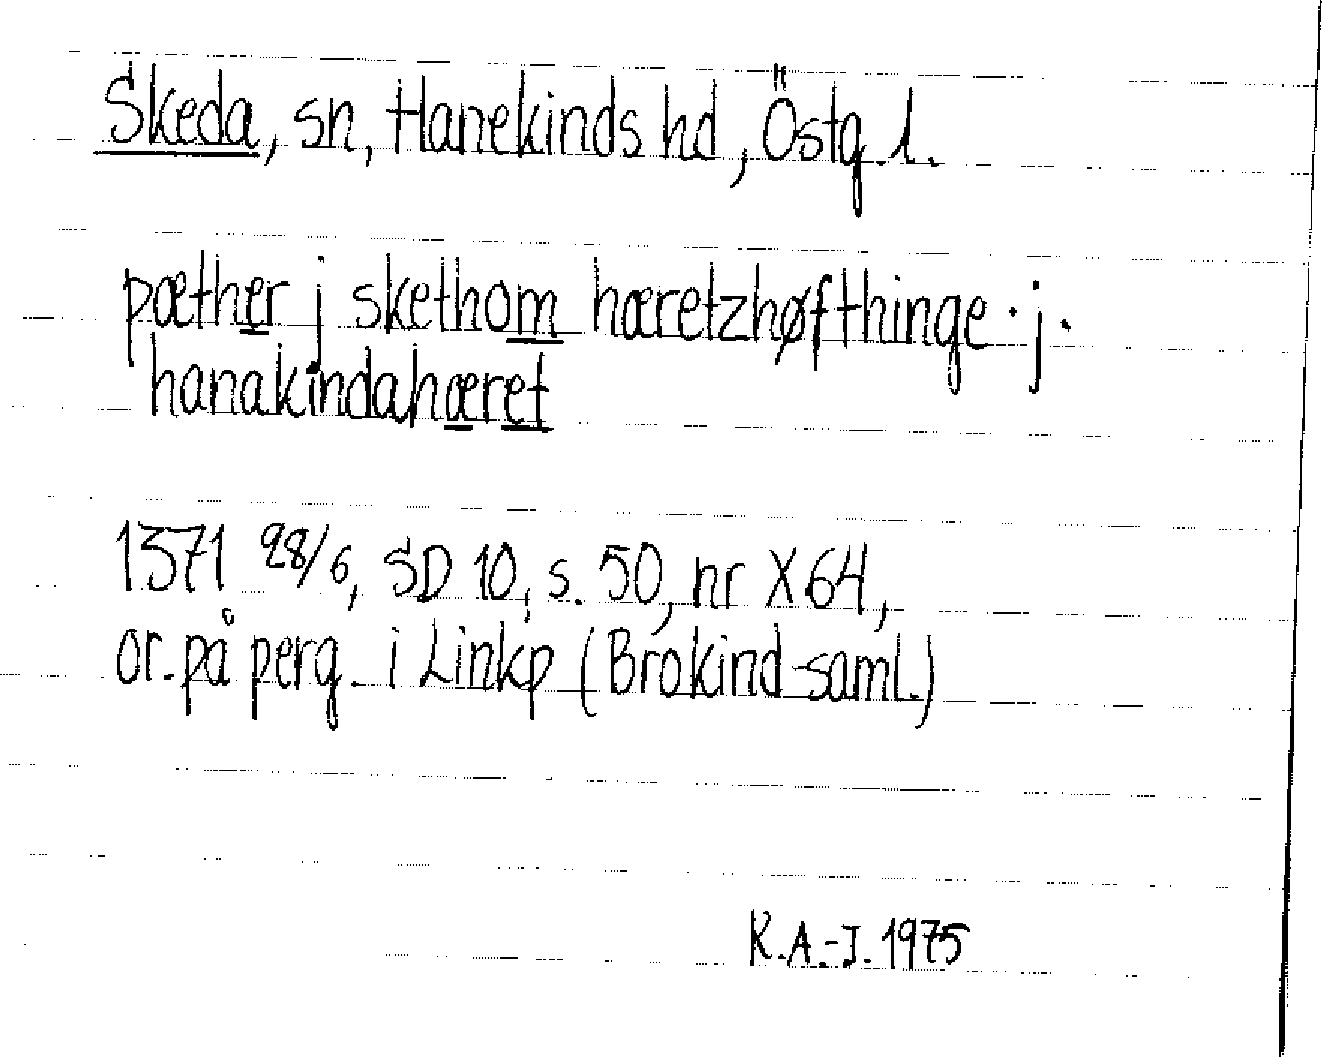 Skeda, sn, Hanekinds hd, Östg. l.
pæther j skethom hæretzhøfthinge · j.
hanakindahæret
1371 28/6, SD 10, s. 50, nr X 64,
or. på perg. i Linkp (Brokind-saml.)
K.A.-J. 1975